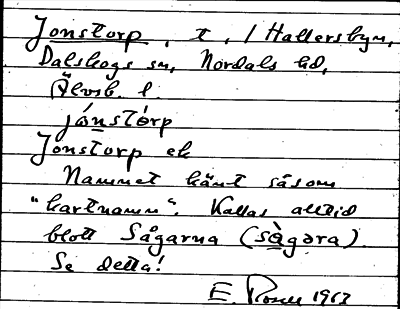 Jonstorp, t, / Hallersbyn,
Dalskogs sn, Nordals hd,
Älvsb. l.
jónstórp
Jonstorp ek
Namnet känt såsom
"kartnamn". Kallas alltid
blott Sågarna (sàgəra).
Se detta!
E. 1963